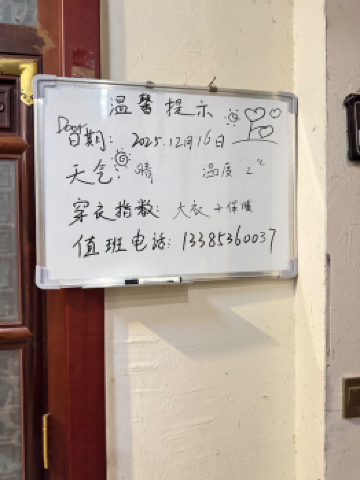 温馨提示
Door
日期: 2025.12月16日
天气: 晴 温度 2℃
穿衣指数: 大衣+保暖
值班电话: 13385360037